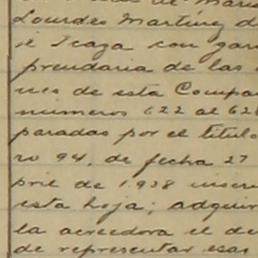 Lourdes Martinez d
sé Icaza con gar
prendaria de las
nes de esta Compa
números 622 al 62
paradas por el título
ro 94, de fecha 27
pril de 1.938 inscri
esta hoja; adquir
la acreedora el de
de representar esas